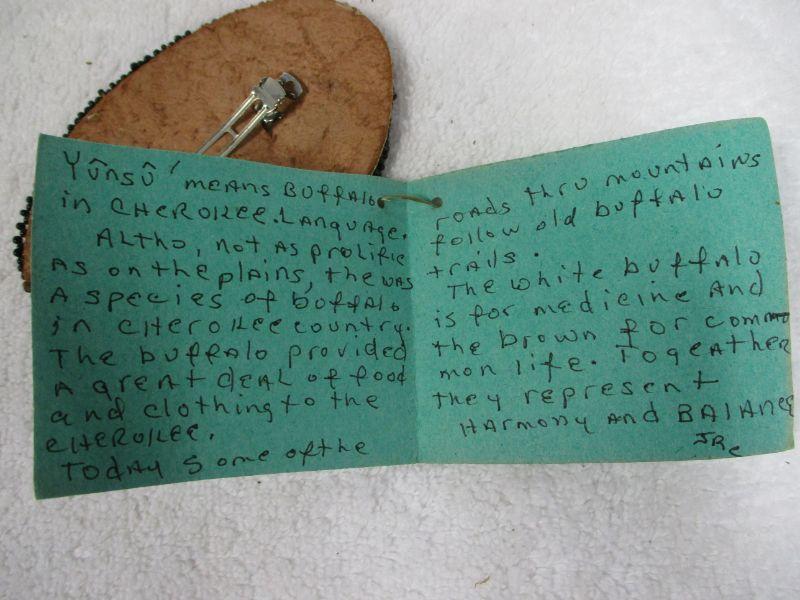 Yûnsû' means Buffalo
in CHEROKEE. Language.
Altho, not as prolific
as on the plains, the was
a species of buffalo
in CHEROKEE country.
The buffalo provided
a great deal of food
and clothing to the
CHEROKEE.
Today some of the
roads thru mountains
follow old buffalo
trails.
The white buffalo
is for medicine and
the brown for com
mon life. Togeather
they represent
Harmony and Balance